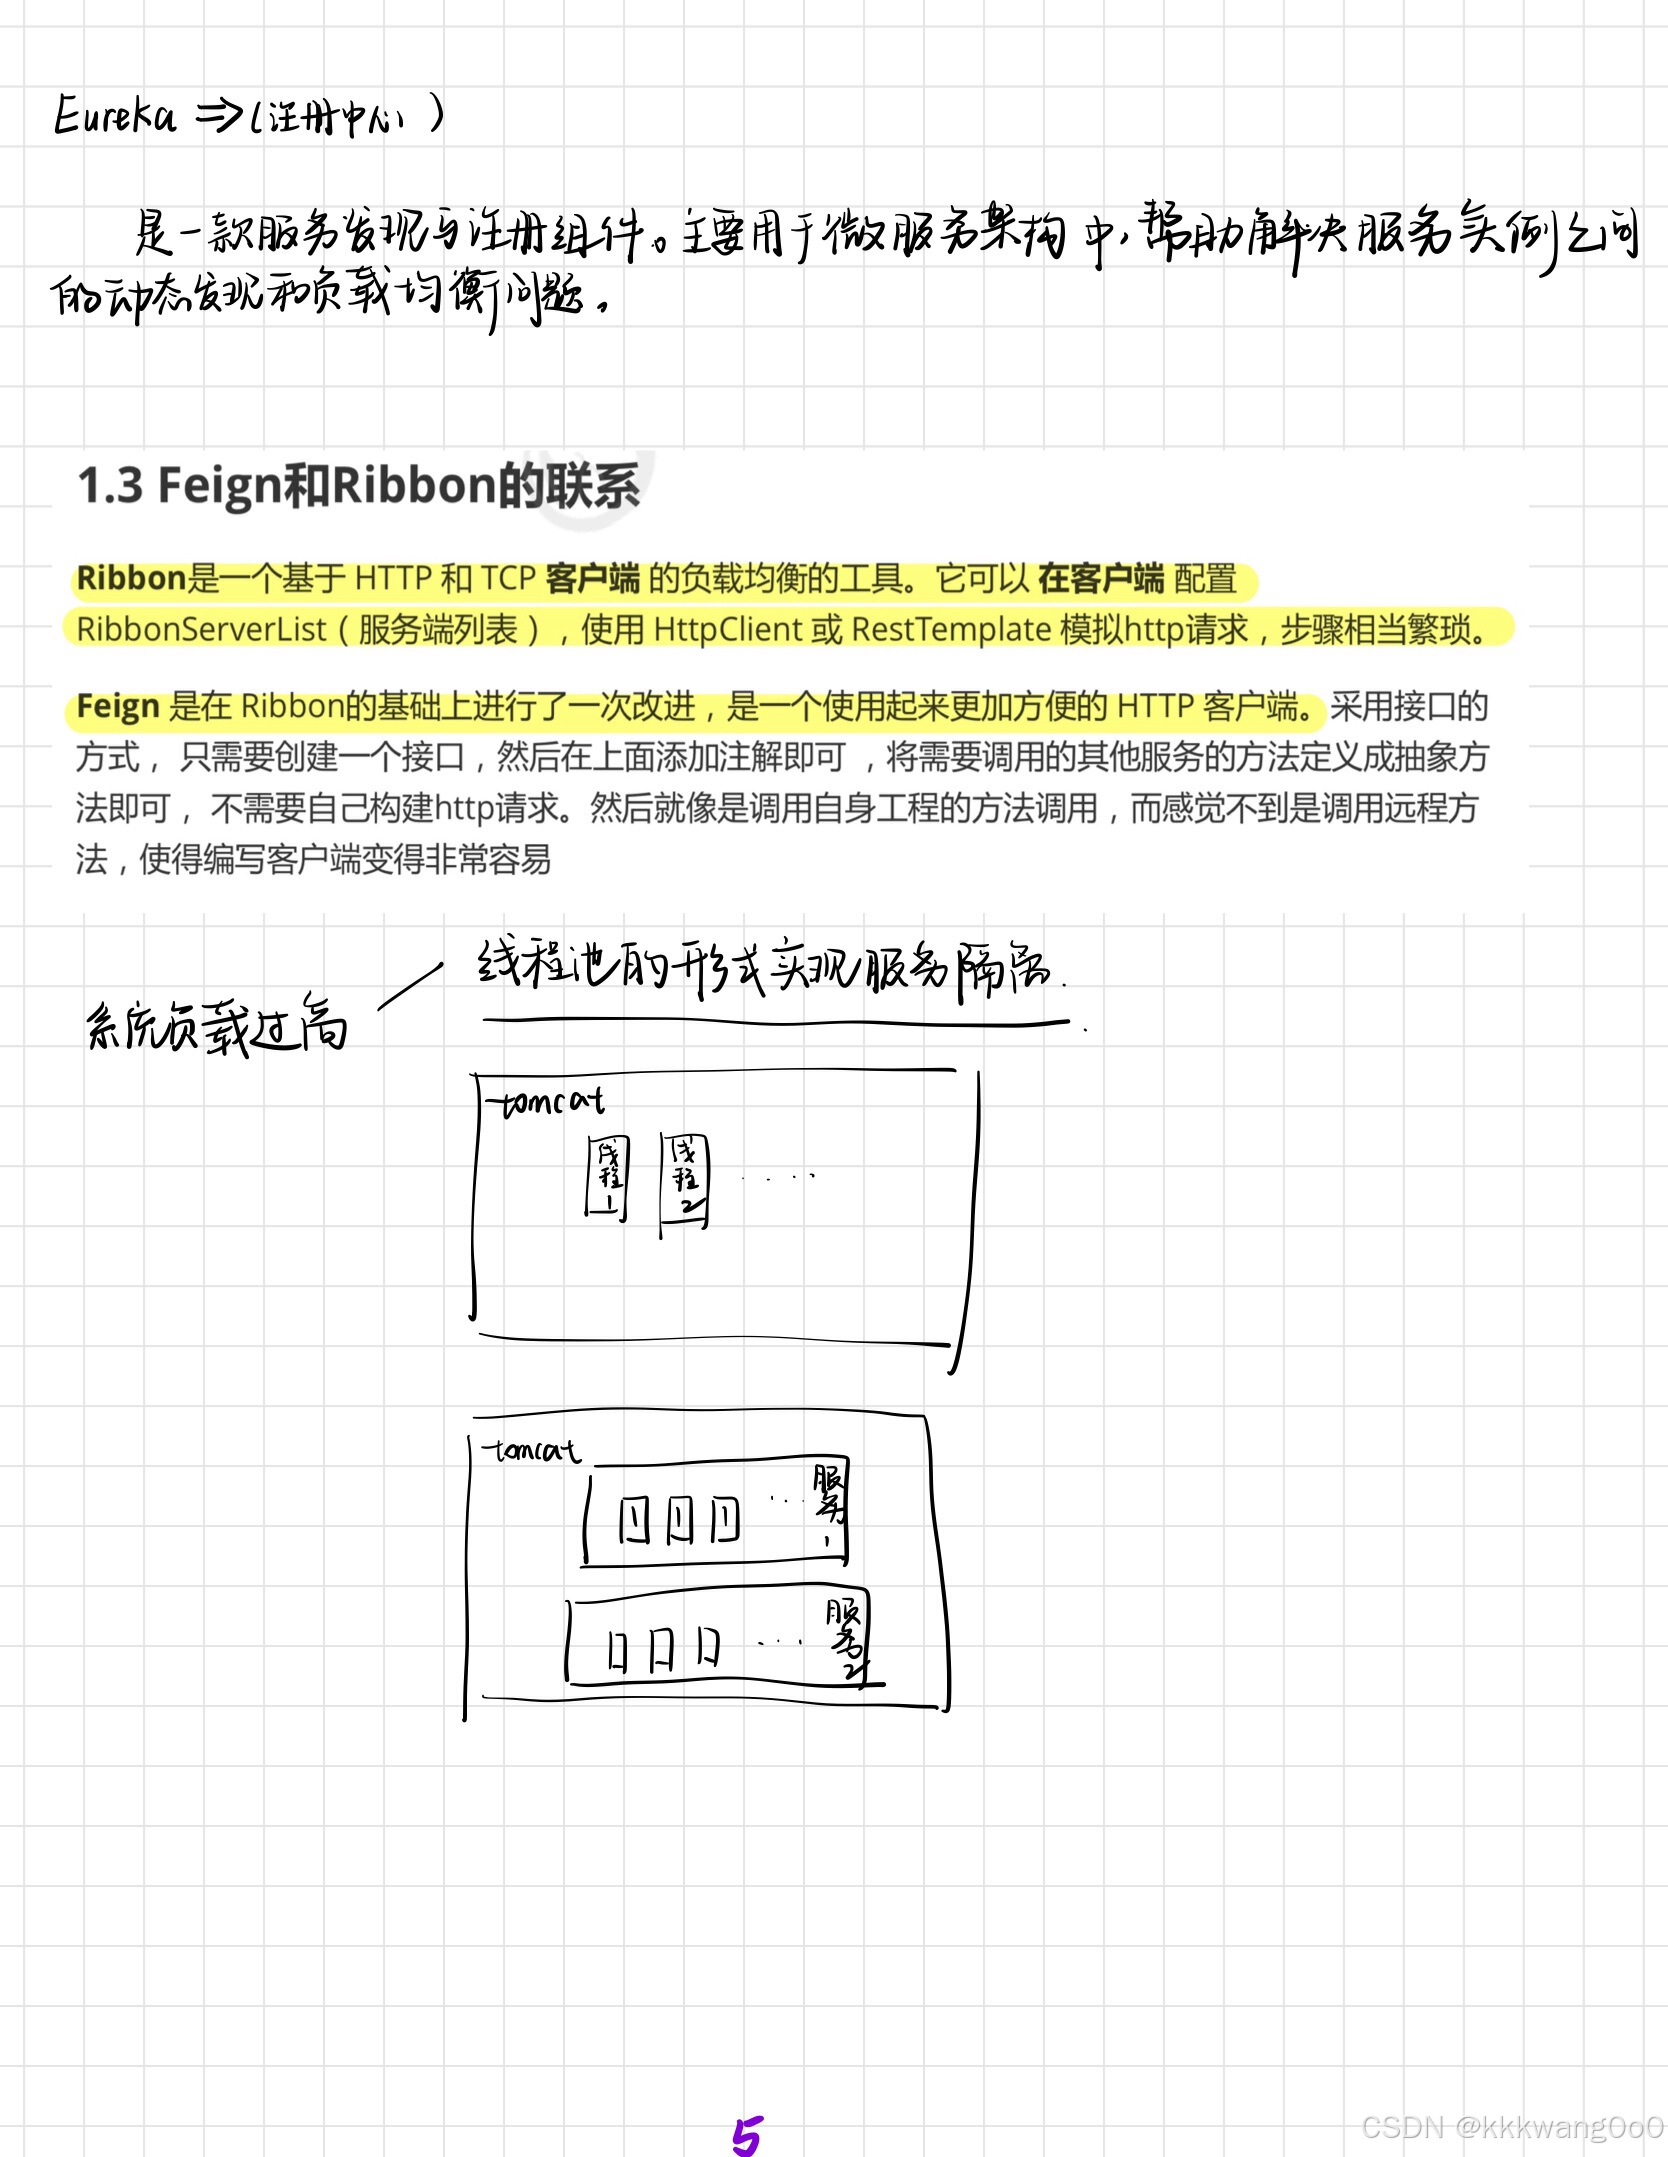 Eureka ⇒(注册中心)
是一款服务发现与注册组件。主要用于微服务架构中,帮助解决服务实例之间
的动态发现和负载均衡问题。
1.3 Feign和Ribbon的联系
Ribbon是一个基于 HTTP 和 TCP 客户端 的负载均衡的工具。它可以 在客户端 配置
RibbonServerList（服务端列表），使用 HttpClient 或 RestTemplate 模拟http请求，步骤相当繁琐。
Feign 是在 Ribbon的基础上进行了一次改进，是一个使用起来更加方便的 HTTP 客户端。采用接口的
方式， 只需要创建一个接口，然后在上面添加注解即可 ，将需要调用的其他服务的方法定义成抽象方
法即可， 不需要自己构建http请求。然后就像是调用自身工程的方法调用，而感觉不到是调用远程方
法，使得编写客户端变得非常容易
线程池的形式实现服务隔离.
系统负载过高
tomcat
线程1 线程2 ....
tomcat
1 1 1 ... 服务1
... 服务2
5
CSDN @kkkwang0o0